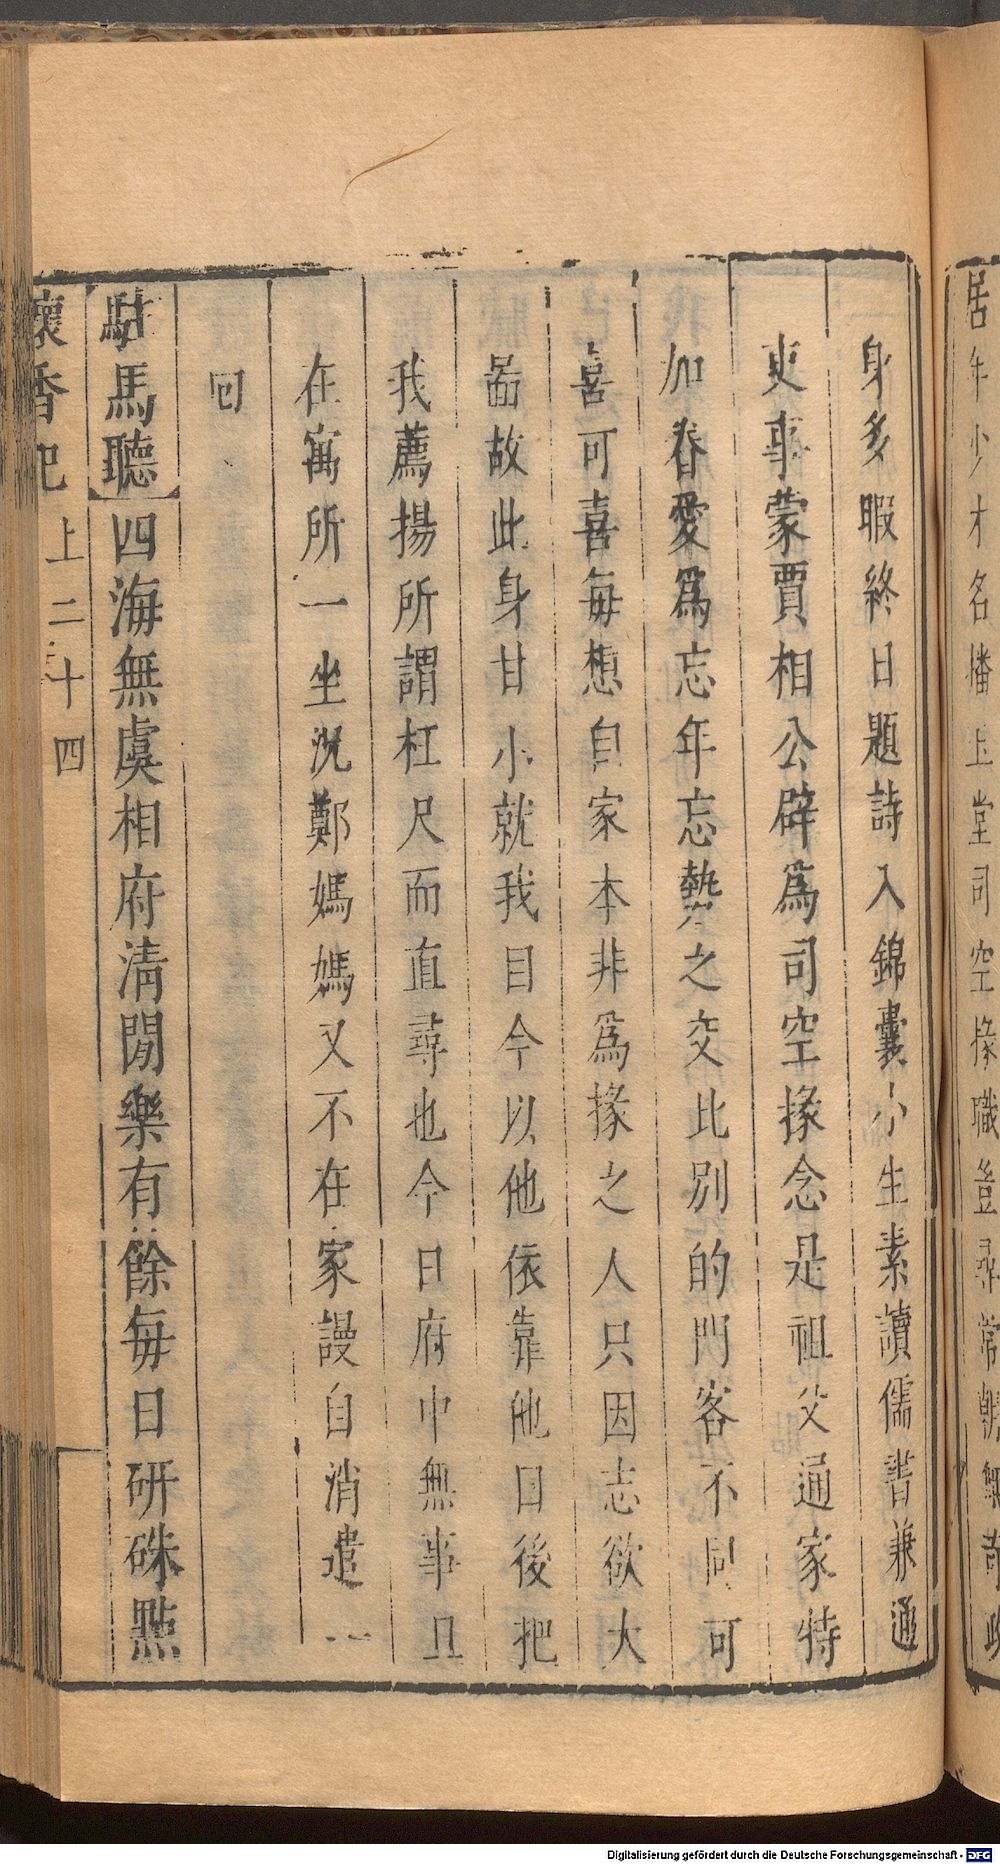 居年少才名播玉堂司空掾職豈尋常朝無
身多暇終日題詩入錦囊小生素讀儒書兼通
吏事蒙賈相公辟爲司空掾念是祖父通家特
加眷愛爲忘年忘勢之交比別的門客不同可
喜可喜每想自家本非爲掾之人只因志欲大
啚故此身甘小就我目今以他依靠他日後把
我薦揚所謂枉尺而直尋也今日府中無事且
在寓所一坐況鄭媽媽又不在家謾自消遣一
回
駐馬聽 四海無虞相府清閒樂有餘每日研硃點
懷香記 上 二十四
Digitalisierung gefördert durch die Deutsche Forschungsgemeinschaft - DFG